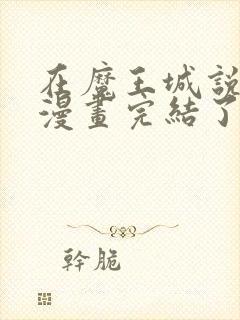 在魔王城說
漫畫完結了
幹脆